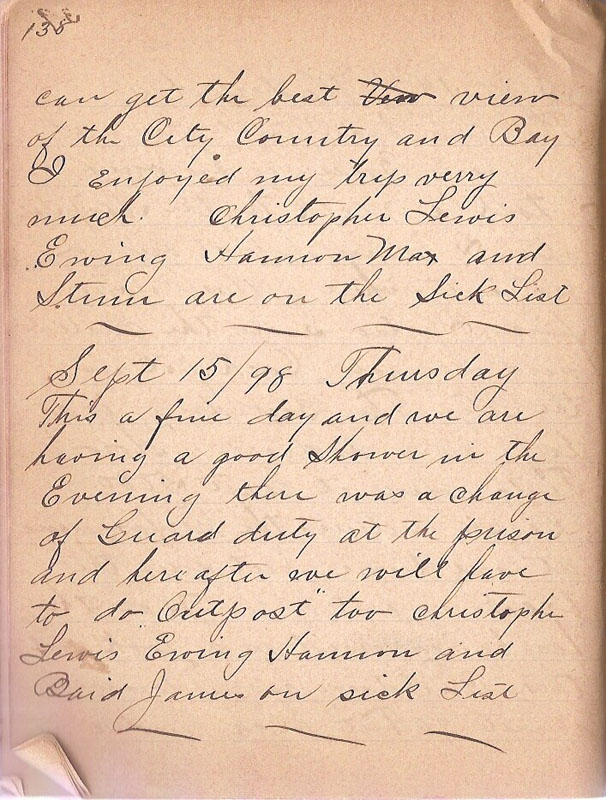 138
can get the best View view
of the City Country and Bay
I enjoyed my trip verry
much. Christopher Lewis
Ewing Hannon Max and
Stunn are on the Sick List
Sept 15/98 Thursday
This a fine day and we are
having a good Shower in the
Evening there was a change
of Guard duty at the prison
and hereafter we will have
to do "Outpost" too Christophe
Lewis Ewing Hannon and
Baid James on sick List